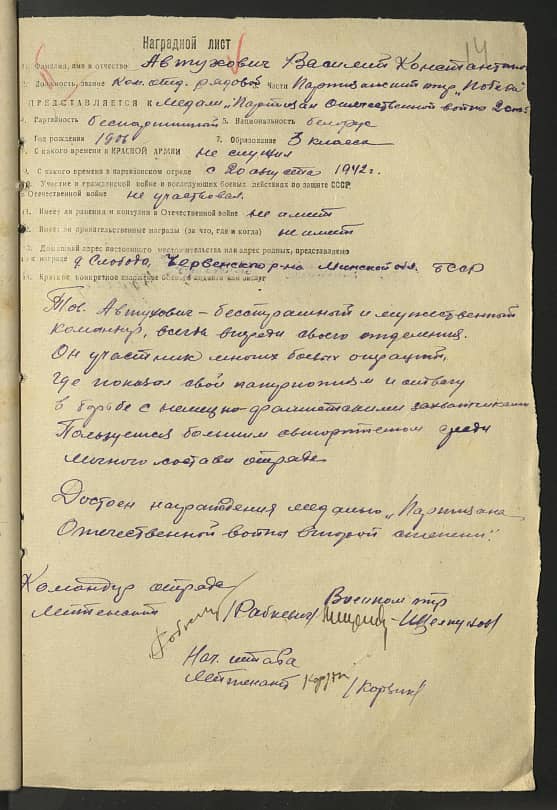 14
Наградной лист
1. Фамилия, имя и отчество Автухович Василий Константинович
2. Должность, звание Ком. отд. рядовой Части Партизанский отр. „Победа"
ПРЕДСТАВЛЯЕТСЯ К Медали „Партизан Отечественной войны 2 степ.
4. Партийность беспартийный 5. Национальность белорус
Год рождения 1906 7. Образование 3 класса
8. С какого времени в КРАСНОЙ АРМИИ не служил
9. С какого времени в партизанском отряде с 20 августа 1942 г.
10. Участие в гражданской войне и последующих боевых действиях по защите СССР,
в Отечественной войне не участвовал.
11. Имеет ли ранения и контузии в Отечественной войне не имеет
12. Имеет ли правительственные награды (за что, где и когда) не имеет
13. Домашний адрес постоянного местожительства или адрес родных, представляемого
к награде д. Слобода, Червенского р-на Минской обл. БССР
Краткое, конкретное изложение боевого подвига или заслуг
Тов. Автухович – бесстрашный и мужественный
командир, всегда впереди своего отделения.
Он участник многих боевых операций,
где показал свой патриотизм и отвагу
в борьбе с немецко-фашистскими захватчиками
Пользуется большим авторитетом среди
личного состава отряда
Достоен награждения медалью „Партизана
Отечественной войны второй степени".
Командир отряда Военком отр
Лейтенант /Рабкевич/ Щелкунов/
Нач. штаба
Лейтенант /Корвин/